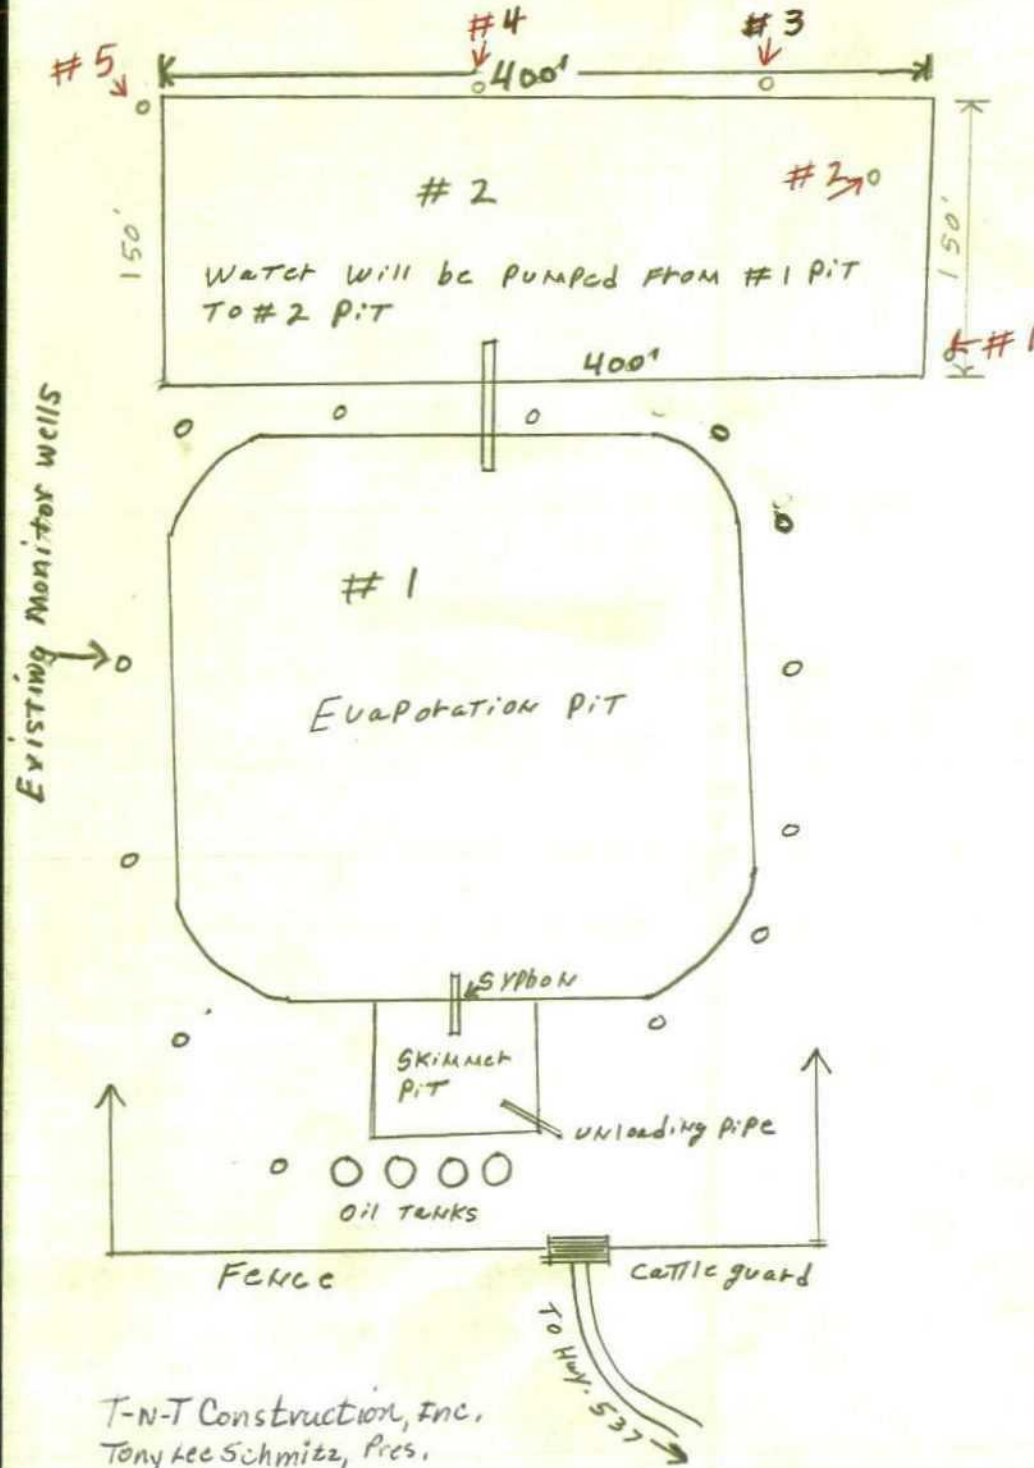 #4
#3
#5
400'
#2
#2
150'
150'
Water will be pumped from #1 pit
To #2 pit
#1
400'
Existing Monitor wells
#1
Evaporation pit
Syphon
Skimmer
pit
unloading pipe
Oil Tanks
Fence
Cattle guard
To Hwy. 537
T-N-T Construction, Inc.
Tony Lee Schmitz, Pres.